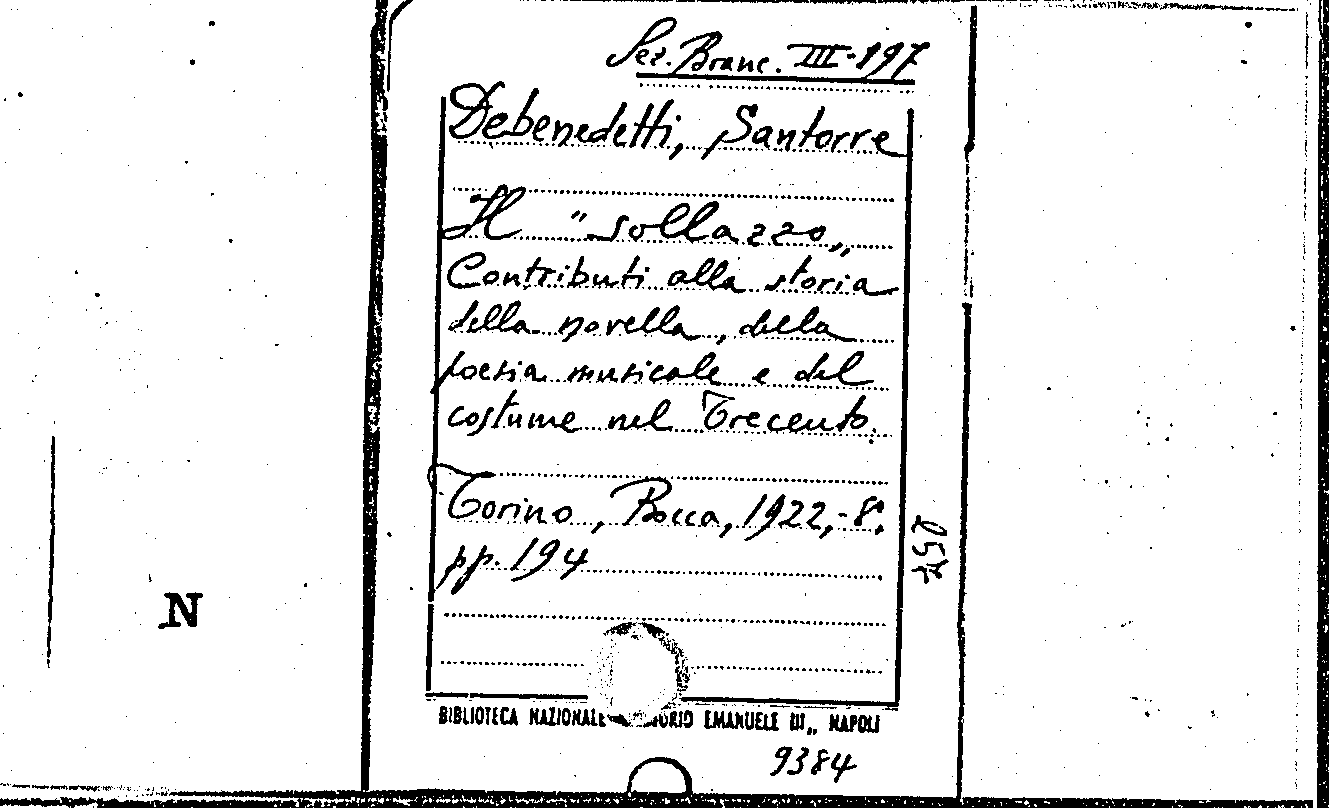 Sez. Branc. III-197
Debenedetti, Santorre
Il "sollazzo„
Contributi alla storia
della novella, della
poesia musicale e del
costume nel Trecento.
Torino, Bocca, 1922,-8°.
pp. 194
N
BIBLIOTECA NAZIONALE EMANUELE III„ NAPOLI
9384